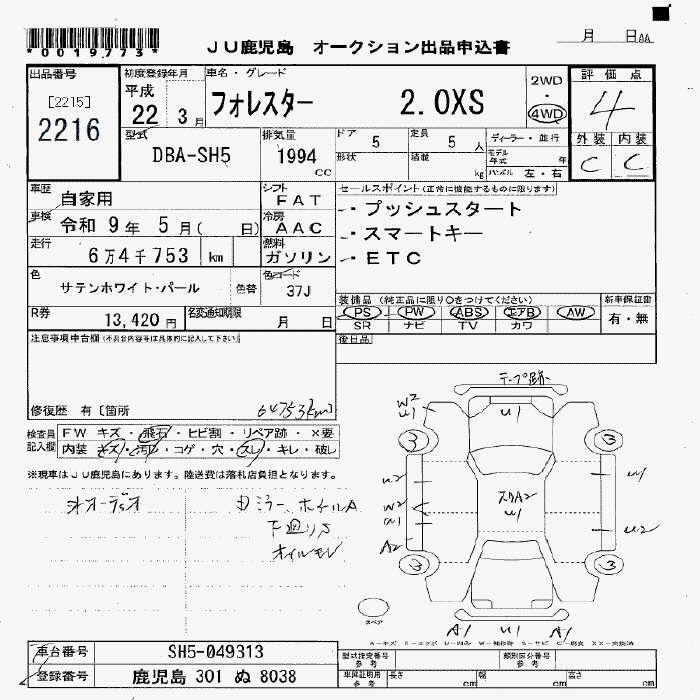 *0019773*
JU鹿児島 オークション出品申込書
月 日AA
出品番号
[2215]
2216
初度登録年月
平成
22 3月
車名・グレード
フォレスター 2.0XS
2WD
・
4WD
評価点
4
外装 内装
C C
型式
DBA-SH5
排気量
1994
cc
ドア 5
定員 5人
形状
積載 kg
ディーラー・並行
モデル年式 年
ハンドル 左・右
車歴
自家用
シフト
FAT
車検
令和 9年 5月( 日)
冷房
AAC
走行
6万4千753 km
燃料
ガソリン
色
サテンホワイト・パール
色替
色コード
37J
R券
13,420円
名変通知期限
月 日
セールスポイント(正常に機能するものに限ります)
・プッシュスタート
・スマートキー
・ETC
装備品(純正品に限り○をつけてください)
PS PW ABS エアB AW
SR ナビ TV カワ
新車保証書
有・無
後日品
注意事項申告欄(不具合内容等は具体的に記入して下さい)
修復歴 有〔箇所
64753km〕
検査員記入欄
FW キズ・飛石・ヒビ割・リペア跡・×要
内装 キズ・汚レ・コゲ・穴・スレ・キレ・破レ
※現車はJU鹿児島にあります。陸送費は落札店負担となります。
社オーデオ
ミラー、ホイルA
下廻りS
オイルモレ
テープ跡
W2
U1
U1
3
3
U2
スリA2
U1
U1
W2
U1
U2
A2
3
3
スペア
A1 U1 A1
A-キズ
車台番号 SH5-049313
登録番号 鹿児島 301 ぬ 8038
型式指定番号
参考
類別区分番号
参考
車庫証明用
参考
長さ cm
幅 cm
高さ cm